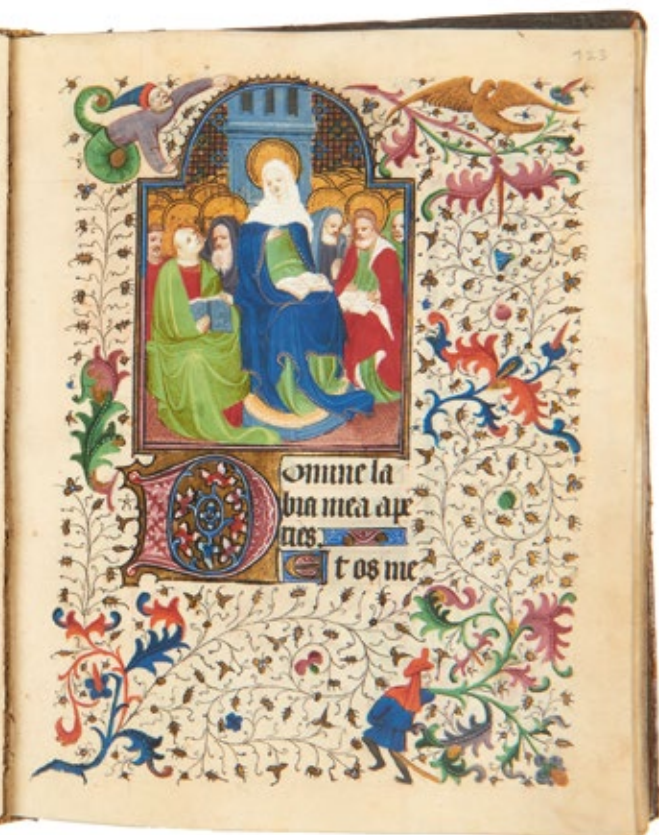 123
Domine la
bia mea ape
ries.
Et os me